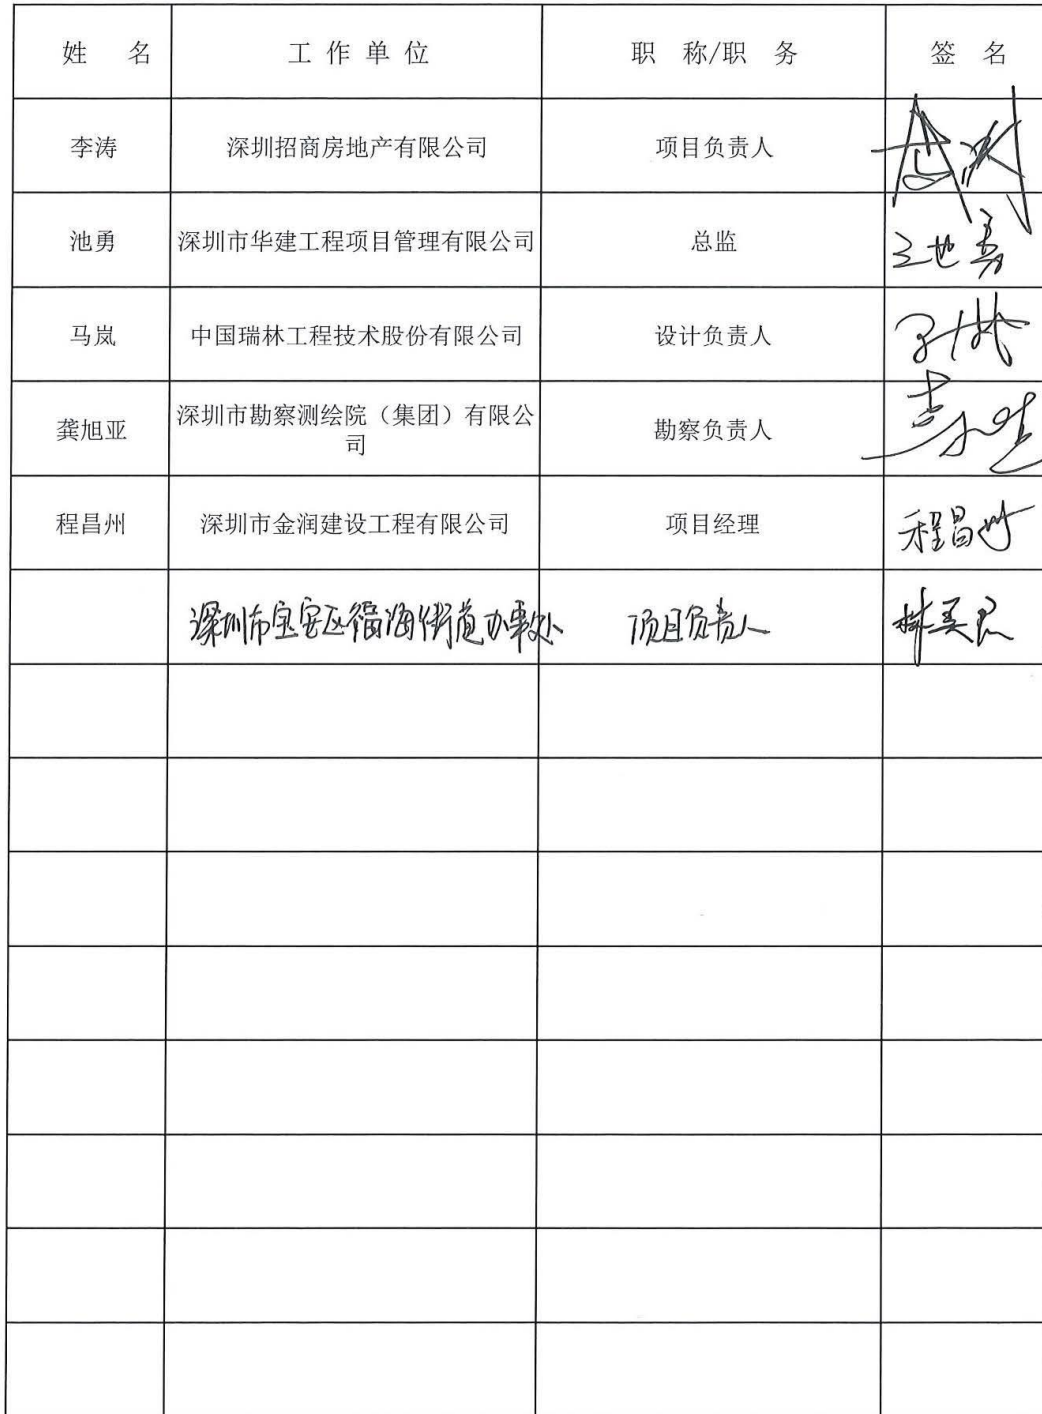 姓 名 工 作 单 位 职 称/职 务 签 名
李涛 深圳招商房地产有限公司 项目负责人
池勇 深圳市华建工程项目管理有限公司 总监
马岚 中国瑞林工程技术股份有限公司 设计负责人
龚旭亚 深圳市勘察测绘院（集团）有限公
司 勘察负责人
程昌州 深圳市金润建设工程有限公司 项目经理 程昌州
深圳市宝安区福海街道办事处 项目负责人